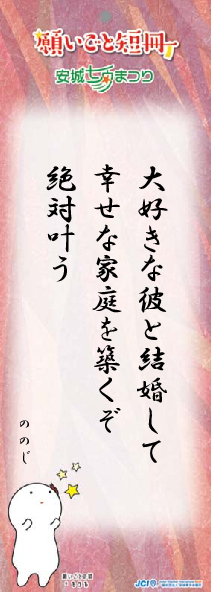 願いごと短冊
安城七夕まつり
大好きな彼と結婚して
幸せな家庭を築くぞ
絶対叶う
ののじ
願いごと短冊
JCI